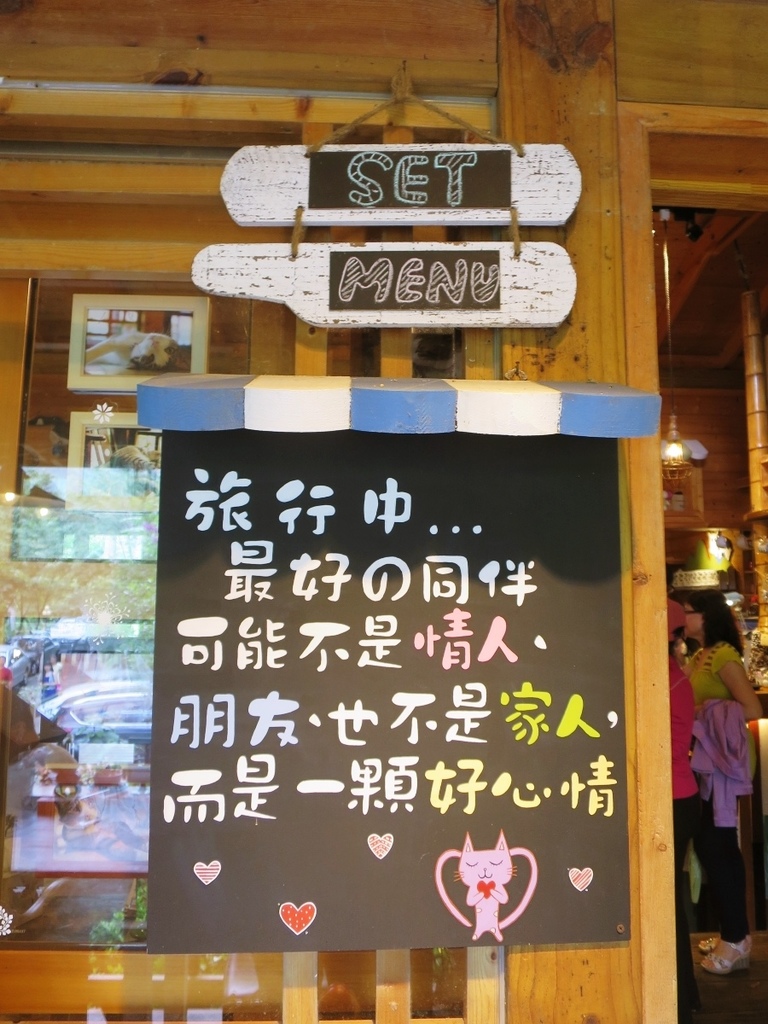 SET
MENU
旅行中...
最好の同伴
可能不是情人、
朋友、也不是家人,
而是一顆好心情